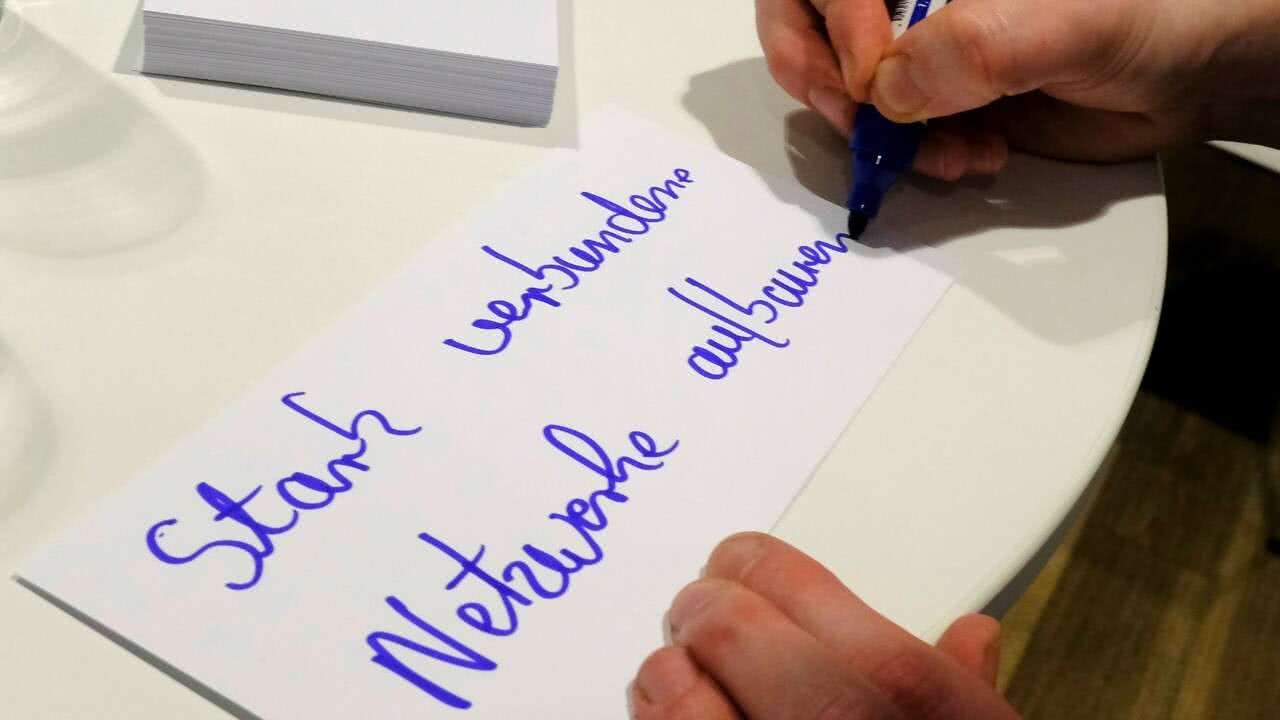 Stark verbundene
Netzwerke aufbauen